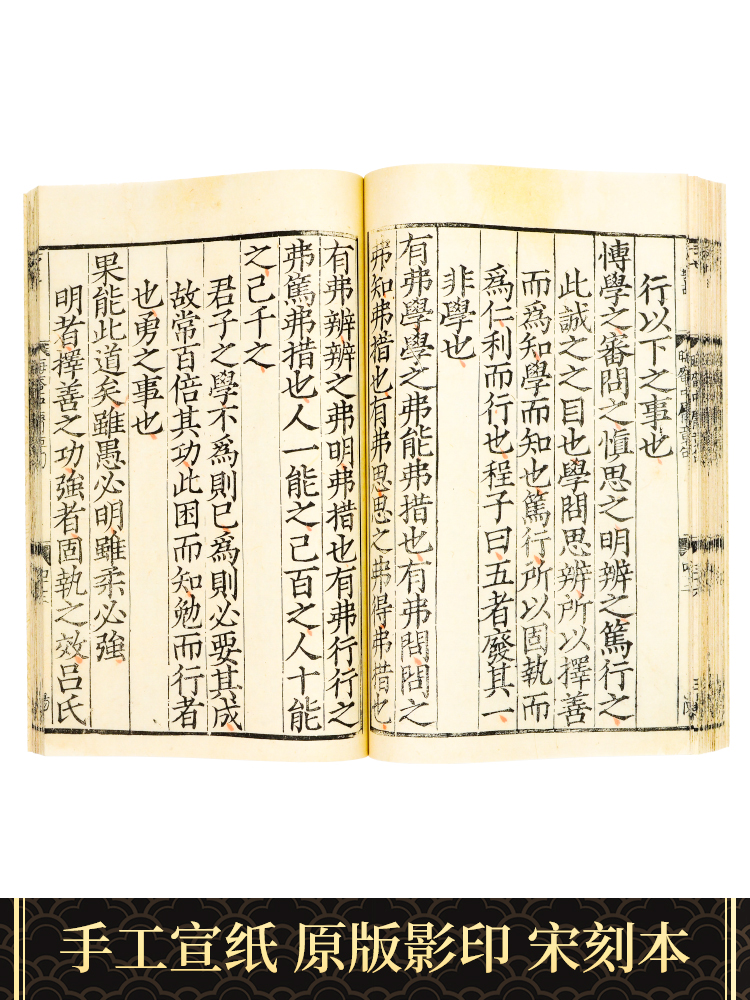 行以下之事也
博學之審問之慎思之明辨之篤行之
此誠之之目也學問思辨所以擇善
而爲知學而知也篤行所以固執而
爲仁利而行也程子曰五者廢其一
非學也
有弗學學之弗能弗措也有弗問問之
弗知弗措也有弗思思之弗得弗措也
有弗辨辨之弗明弗措也有弗行行之
弗篤弗措也人一能之己百之人十能
之己千之
君子之學不爲則已爲則必要其成
故常百倍其功此困而知勉而行者
也勇之事也
果能此道矣雖愚必明雖柔必強
明者擇善之功強者固執之效呂氏
手工宣纸 原版影印 宋刻本